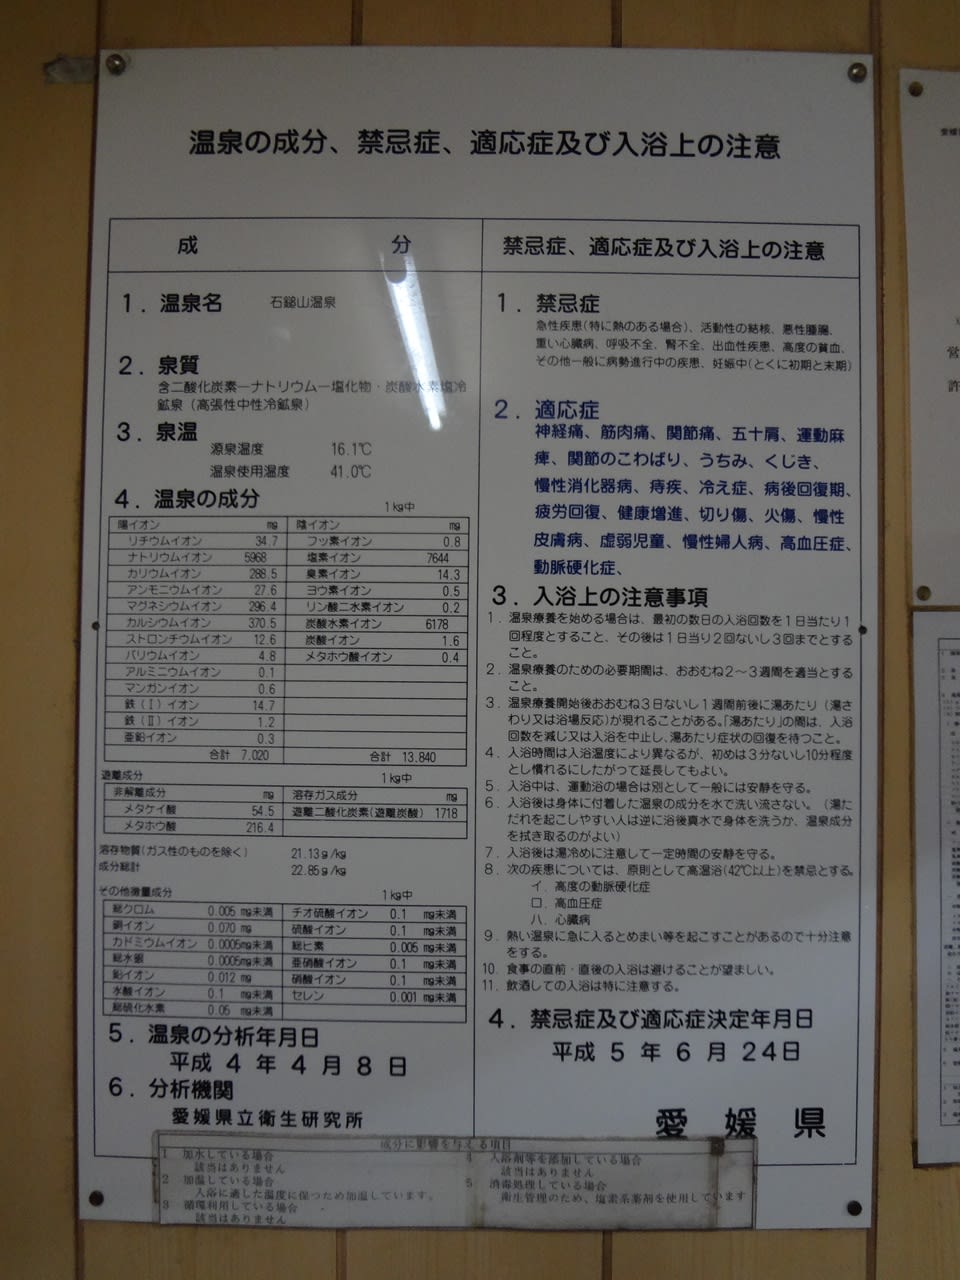 温泉の成分、禁忌症、適応症及び入浴上の注意
成 分
1. 温泉名 石鎚山温泉
2. 泉質
含二酸化炭素ーナトリウムー塩化物・炭酸水素塩冷
鉱泉（高張性中性冷鉱泉）
3. 泉温
源泉温度 16.1℃
温泉使用温度 41.0℃
4. 温泉の成分 1kg中
陽イオン mg 陰イオン mg
リチウムイオン 34.7 フッ素イオン 0.8
ナトリウムイオン 5968 塩素イオン 7644
カリウムイオン 288.5 臭素イオン 14.3
アンモニウムイオン 27.6 ヨウ素イオン 0.5
マグネシウムイオン 296.4 リン酸二水素イオン 0.2
カルシウムイオン 370.5 炭酸水素イオン 6178
ストロンチウムイオン 12.6 炭酸イオン 1.6
バリウムイオン 4.8 メタホウ酸イオン 0.4
アルミニウムイオン 0.1
マンガンイオン 0.6
鉄(Ⅰ)イオン 14.7
鉄(Ⅱ)イオン 1.2
亜鉛イオン 0.3
合計 7.020 合計 13.840
遊離成分 1kg中
非解離成分 mg 溶存ガス成分 mg
メタケイ酸 54.5 遊離二酸化炭素(遊離炭酸) 1718
メタホウ酸 216.4
溶存物質(ガス性のものを除く) 21.13g/kg
成分総計 22.85g/kg
その他微量成分 1kg中
総クロム 0.005 mg未満 チオ硫酸イオン 0.1 mg未満
銅イオン 0.070 mg 硫酸イオン 0.1 mg未満
カドミウムイオン 0.0005mg未満 総ヒ素 0.005 mg未満
総水銀 0.0005mg未満 亜硝酸イオン 0.1 mg未満
鉛イオン 0.012 mg 硝酸イオン 0.1 mg未満
水酸イオン 0.1 mg未満 セレン 0.001 mg未満
総硫化水素 0.05 mg未満
5. 温泉の分析年月日
平成 4 年 4 月 8 日
6. 分析機関
愛媛県立衛生研究所
禁忌症、適応症及び入浴上の注意
1. 禁忌症
急性疾患(特に熱のある場合)、活動性の結核、悪性腫腸、
重い心臓病、呼吸不全、腎不全、出血性疾患、高度の貧血、
その他一般に病勢進行中の疾患、妊娠中(とくに初期と末期)
2. 適応症
神経痛、筋肉痛、関節痛、五十肩、運動麻
痺、関節のこわばり、うちみ、くじき、
慢性消化器病、痔疾、冷え症、病後回復期、
疲労回復、健康増進、切り傷、火傷、慢性
皮膚病、虚弱児童、慢性婦人病、高血圧症、
動脈硬化症、
3. 入浴上の注意事項
1. 温泉療養を始める場合は、最初の数日の入浴回数を1日当たり1
回程度とすること、その後は1日当り2回ないし3回までとする
こと。
2. 温泉療養のための必要期間は、おおむね2〜3週間を適当とする
こと。
3. 温泉療養開始後おおむね3日ないし1週間前後に湯あたり（湯さ
わり又は浴場反応）が現れることがある。「湯あたり」の間は、入浴
回数を減じ又は入浴を中止し、湯あたり症状の回復を待つこと。
4. 入浴時間は入浴温度により異なるが、初めは3分ないし10分程度
とし慣れるにしたがって延長してもよい。
5. 入浴中は、運動浴の場合は別として一般には安静を守る。
6. 入浴後は身体に付着した温泉の成分を水で洗い流さない。（湯た
だれを起こしやすい人は逆に浴後真水で身体を洗うか、温泉成分
を拭き取るのがよい）
7. 入浴後は湯冷めに注意して一定時間の安静を守る。
8. 次の疾患については、原則として高温浴(42℃以上)を禁忌とする。
イ. 高度の動脈硬化症
ロ. 高血圧症
ハ. 心臓病
9. 熱い温泉に急に入るとめまい等を起こすことがあるので十分注意
をする。
10. 食事の直前・直後の入浴は避けることが望ましい。
11. 飲酒しての入浴は特に注意する。
4. 禁忌症及び適応症決定年月日
平成 5 年 6 月 24日
愛 媛 県
成分に影響を与える項目
1 加水している場合
該当はありません
2 加温している場合
入浴に適した温度に保つため加温しています。
3 循環利用している場合
該当はありません
4 入浴剤等を添加している場合
該当はありません
5 消毒処理している場合
衛生管理のため、塩素系薬剤を使用しています